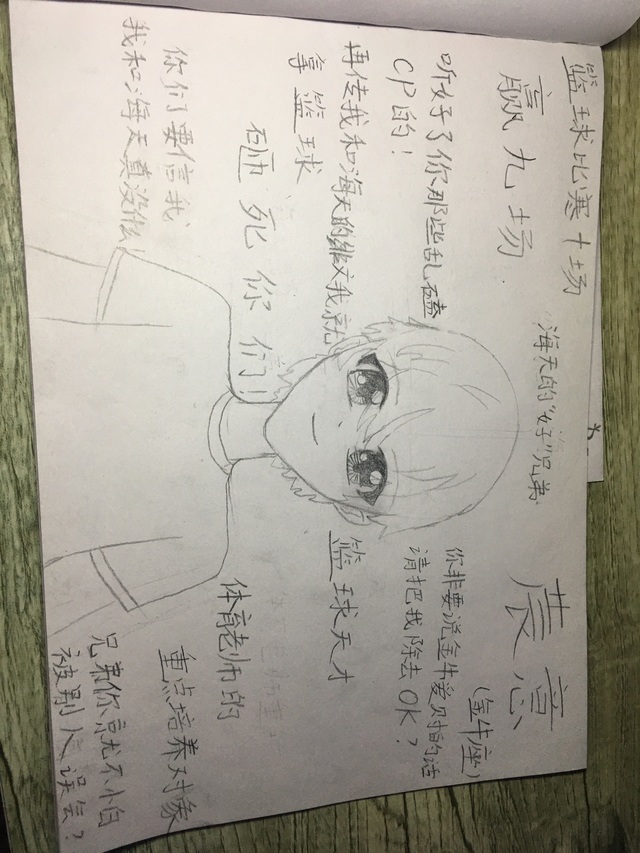 篮球比赛十场
赢九场
海天的“好”兄弟
听好了你那些乱磕
CP的！
再传我和海天的绯文我就
拿篮球
砸死你们！
你们要信我
我和海天真没什么！
晨意
（金牛座）
你非要说金牛爱财的话
请把我除去OK？
篮球天才
体育老师的
重点培养对象
兄弟你就不怕
被别人误会？